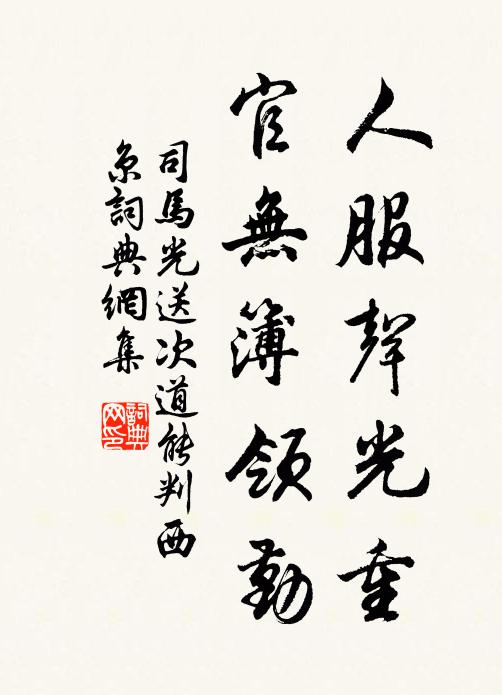 人服聲光重
官無簿領勤
司馬光送次道能判西
京詞典網集
詞典
网印